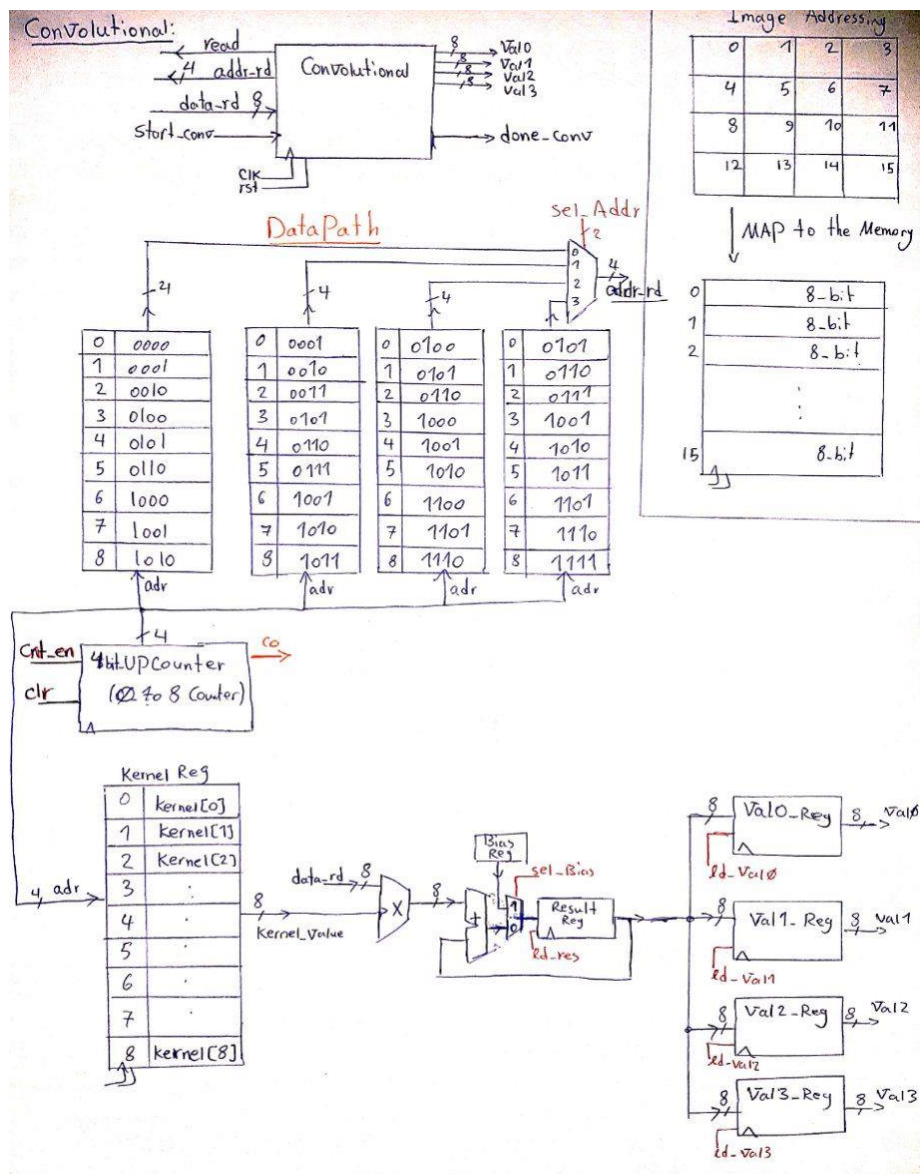 Convolutional:
read
4 addr-rd
data-rd 8
Start_conv
Clk
rst
Convolutional
8 Val0
8 Val1
8 Val2
8 Val3
done_conv
Image Addressing
0 1 2 3
4 5 6 7
8 9 10 11
12 13 14 15
MAP to the Memory
0 8-bit
1 8-bit
2 8-bit
15 8-bit
DataPath
sel_Addr
2
0
1
2
3
4
addr-rd
4 4 4
0 0000
1 0001
2 0010
3 0100
4 0101
5 0110
6 1000
7 1001
8 1010
adr
0 0001
1 0010
2 0011
3 0101
4 0110
5 0111
6 1001
7 1010
8 1011
adr
0 0100
1 0101
2 0110
3 1000
4 1001
5 1010
6 1100
7 1101
8 1110
adr
0 0101
1 0110
2 0111
3 1001
4 1010
5 1011
6 1101
7 1110
8 1111
adr
4
Cnt_en
clr
4bit UPCounter
(0 to 8 Counter)
co
Kernel Reg
0 kernel[0]
1 kernel[1]
2 kernel[2]
3
4
5
6
7
8 kernel[8]
4 adr
8
Kernel_Value
data_rd 8
X
8
+
Bias
Reg
sel_Bias
1
0
Result
Reg
ld-res
8 Val0_Reg 8 Val0
ld-Val0
8 Val1_Reg 8 Val1
ld-Val1
8 Val2_Reg 8 Val2
ld-Val2
8 Val3_Reg 8 Val3
ld-Val3